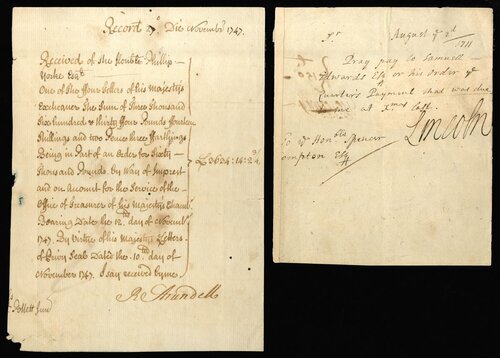 Record 27o Die Novembr 1747.
Received of the Honble Phillip
Yorke Esqr
One of the ffour Tellers of his Majestys
Exchequer The Sum of Three Thousand
Six hundred & thirty ffour Pounds ffourteen
Shillings and two Pence three ffarthings
Being in Part of an Order for Sixty
thousand Pounds. by Way of Imprest
and on Account for the Service of the
Office of Treasurer of his Majestys Chambr
Bearing Date the 12th day of Novembr
1747. By Virtue of his Majestys Letters
of Privy Seal Dated the 10th day of
November 1747. I say received by me
£3634:14:2¾
R Arundell
Pollett Junr
Sr August ye 2d
1711
Pray pay to Samuell
Edwards Esq or his Order ye
Quarters Payment that was due
to me at Xmas last.
Lincoln
To ye Honble Spencer
Compton Esq